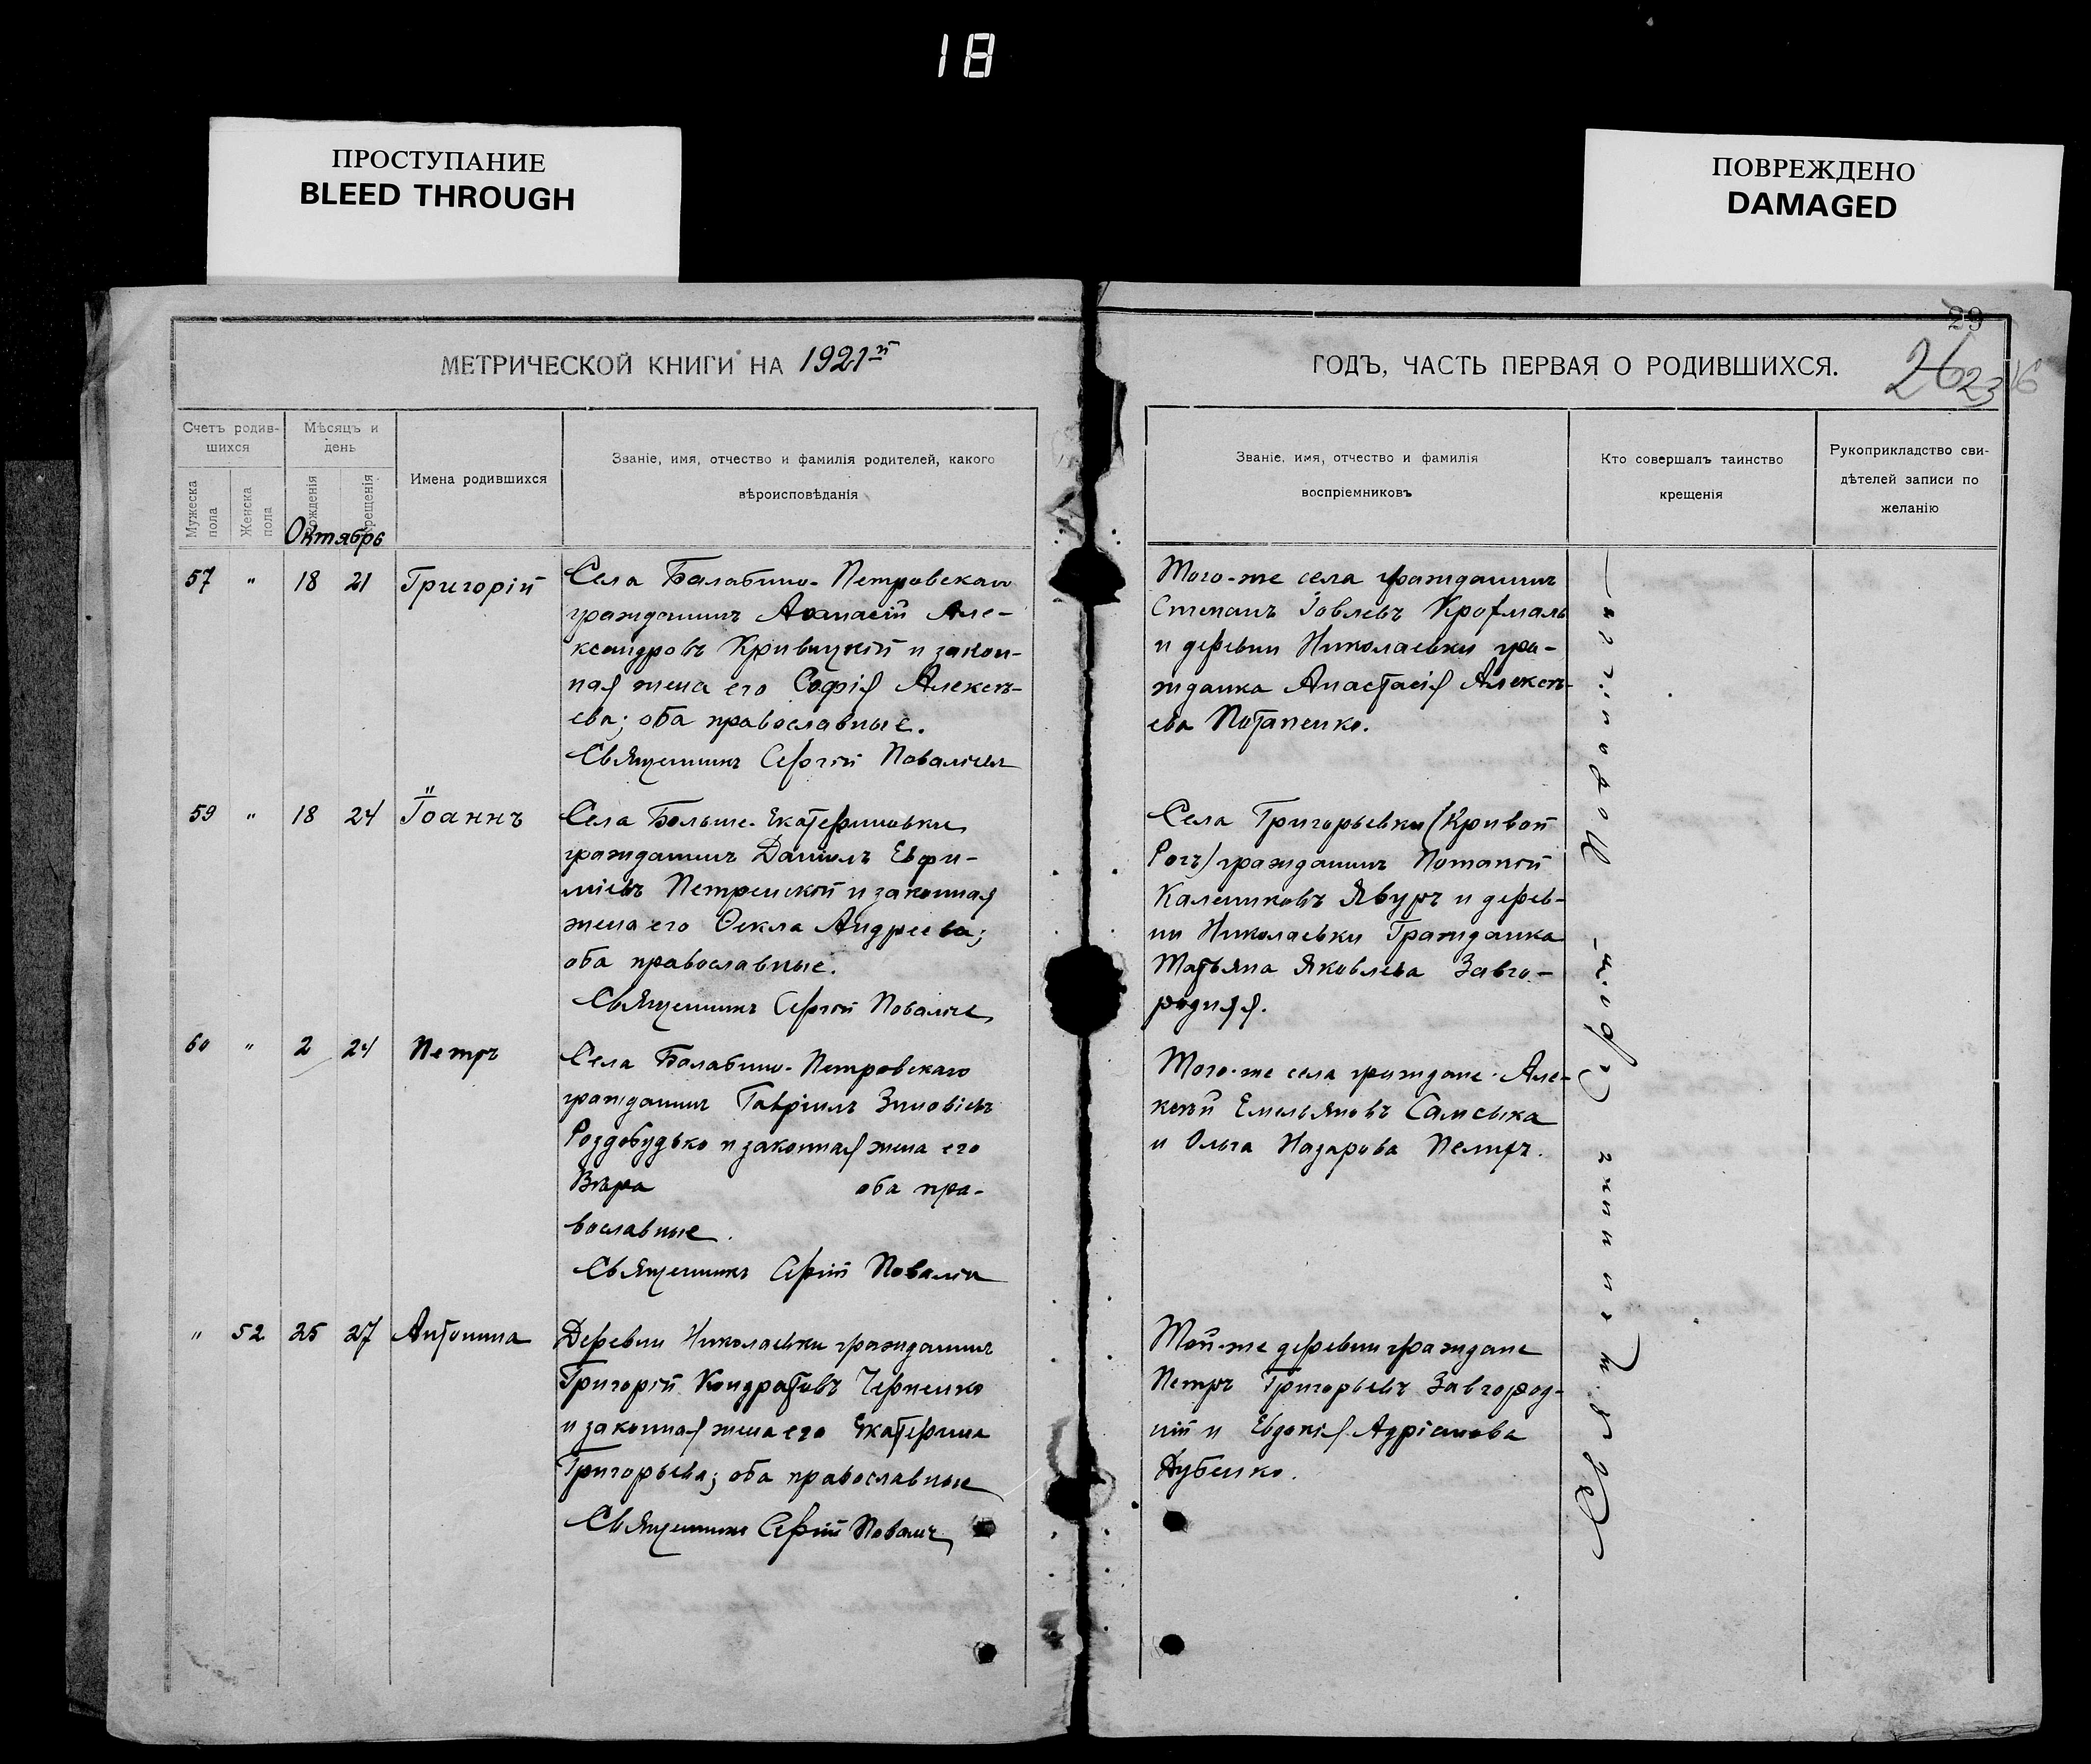 18
ПРОСТУПАНИЕ
BLEED THROUGH
ПОВРЕЖДЕНО
DAMAGED
29
МЕТРИЧЕСКОЙ КНИГИ НА 1921й
ГОДЪ, ЧАСТЬ ПЕРВАЯ О РОДИВШИХСЯ.
26 23 16
Счетъ родив-
шихся
Мужеска пола
Женска пола
Мѣсяцъ и
день
рожденія
крещенія
Имена родившихся
Званіе, имя, отчество и фамилія родителей, какого
вѣроисповѣданія
Званіе, имя, отчество и фамилія
воспріемниковъ
Кто совершалъ таинство
крещенія
Рукоприкладство сви-
дѣтелей записи по
желанію
Октябрь
57 " 18 21 Григорій
Села Балабино-Петровскаго
гражданинъ Аѳанасій Але-
ксандровъ Кривицкій и закон-
ная жена его Софія Алексѣ-
ева; оба православные.
Священникъ Сергій
Того-же села гражданинъ
Степанъ Іовлевъ Крофмаль
и деревни Николаевки гра-
жданка Анастасія Алексѣ-
ева Потапенко.
59 " 18 24 Іоаннъ
Села Больше-Екатериновки
гражданинъ Даніилъ Евфи-
міевъ Петренской и законная
жена его Ѳекла Андреева;
оба православные.
Священникъ Сергій
Села Григорьевки (Кривой
Рогъ) гражданинъ Потапій
Калениковъ Явуръ и дерев-
ни Николаевки Гражданка
Татьяна Яковлева Завго-
родняя.
60 " 2 24 Петръ
Села Балабино-Петровскаго
гражданинъ Гавріилъ Зиновіевъ
Роздобудько и законная жена его
Вѣра оба пра-
вославные.
Священникъ Сергій
Того-же села граждане Але-
ксѣй Емельяновъ Самсыка
и Ольга Назарова
" 52 25 27 Антонина
Деревни Николаевки гражданинъ
Григорій Кондратовъ Черненко
и законная жена его Екатерина
Григорьева; оба православные
Священникъ Сергій
Той-же деревни граждане
Петръ Григорьевъ Завгород-
ній и Евдокія Адріанова
Дубенко.
Священникъ Сергій